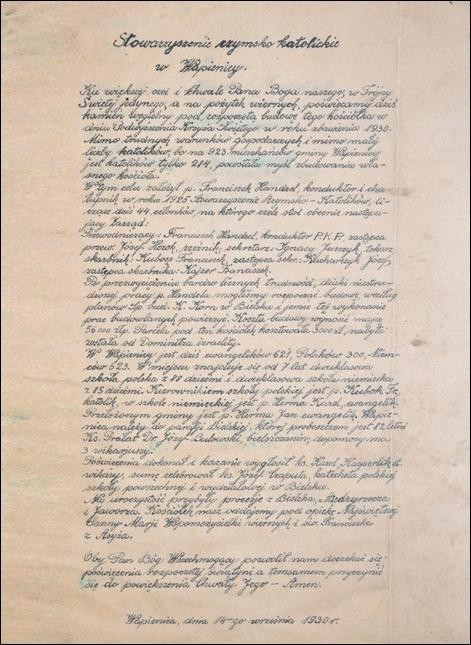 Stowarzyszenie rzymsko katolickie
w Wapienicy.
Ku większej czci i chwale Pana Boga naszego, w Trójcy
Świętej jedynego, a na pożytek wiernych, poświęcamy dziś
kamień węgielny pod rozpoczętą budowę tego kościółka w
dniu Podwyższenia Krzyża Świętego w roku zbawienia 1930.
Mimo trudnych warunków gospodarczych i mimo małej
liczby katolików, bo na 923 mieszkańców gminy Wapienicy
jest katolików tylko 284, powstała myśl zbudowania wła-
snego kościoła.
W tym celu założył p. Franciszek Handzel konduktor i cha-
łupnik w roku 1925 Stowarzyszenie Rzymsko-Katolików, li-
czące dziś 44 członków, na którego czele stoi obecnie następu-
jący Zarząd:
Przewodniczący: Franciszek Handzel, konduktor P.K.P. zastępca
przew. Józef rzeźnik, sekretarz: Ignacy Jurczyk, tokarz
skarbnik: Kubosz Franciszek, zastępca sekr.: Kucharczyk Józef,
zastępca skarbnika: Kajzer Franciszek.
Po przezwyciężeniu bardzo licznych trudności, dzięki niestru-
dzonej pracy p. Handzla mogliśmy rozpocząć budowę, według
planów Sp. Budi. K. Korn w Bielsku i jemu też wykonanie
prac budowlanych powierzyć. Koszta budowy wynosić mają
56000 zł. Parcela pod ten kościółek kosztowała 3000 zł, nabytą
została od Dominitza izraelity.
W Wapienicy jest dziś ewangelików 621, Polaków 300, Niem-
ców 623. W miejscu znajduje się od 7 lat dwuklasowa
szkoła polska z 88 dziećmi i dwuklasowa szkoła niemiecka
z 85 dziećmi. Kierownikiem szkoły polskiej jest p. Kubok Fr.
katolik, w szkole niemieckiej jest p. Herma Karol, ewangelik.
Przełożonym gminy jest p. Herma Jan ewangelik. Wapie-
nica należy do parafji bielskiej, której proboszczem jest 82 letni
Ks. Prałat Dr Józef bielszczanin dopomocy ma
3 wikarjuszy.
Poświęcenia dokonał i kazanie wygłosił ks. Karol Kasperlik st.
wikary, sumę celebrował ks. Józef Czapula, katecheta polskiej
szkoły powszechnej i wydziałowej w Bielsku.
Na uroczystość przybyły procesje z Bielska, Międzyrzecza
i Jaworza. Kościółek nasz oddajemy pod opiekę Najświętszej
Panny Marji Wspomożycielki wiernych i św. Franciszka
z Asyża.
Oby Pan Bóg Wszechmogący pozwolił nam doczekać się
poświęcenia rozpoczętej świątyni a temsamem przyczynić
się do powiększenia Chwały Jego – Amen.
Wapienica, dnia 14-go września 1930 r.